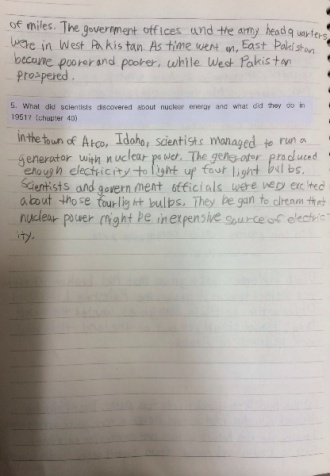 of miles. The government offices and the army headquarters,
were in West Pakistan. As time went on, East Pakistan
became poorer and poorer, while West Pakistan
prospered.
5. What did scientists discovered about nuclear energy and what did they do in
1951? (chapter 40)
In the town of Arco, Idaho, scientists managed to run a
generator with nuclear power. The generator produced
enough electricity to light up four light bulbs.
Scientists and government officials were very excited
about those four light bulbs. They began to dream that
nuclear power might be inexpensive source of electric
ity.